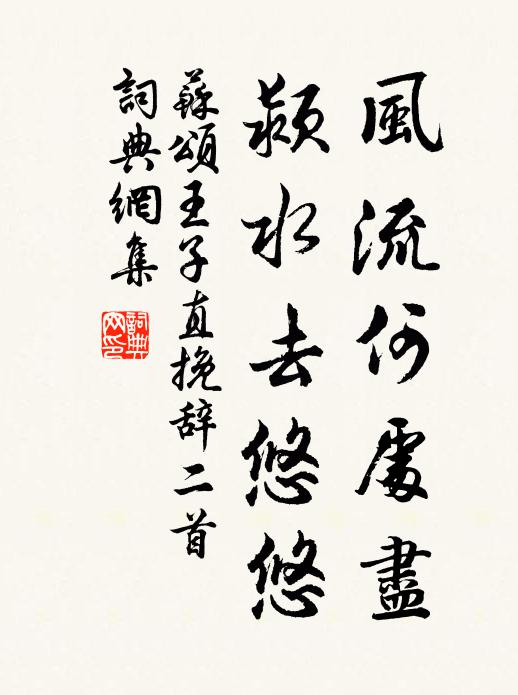 風流何處盡
潁水去悠悠
蘇頌王子直挽辞二首
詞典網集
詞典网印